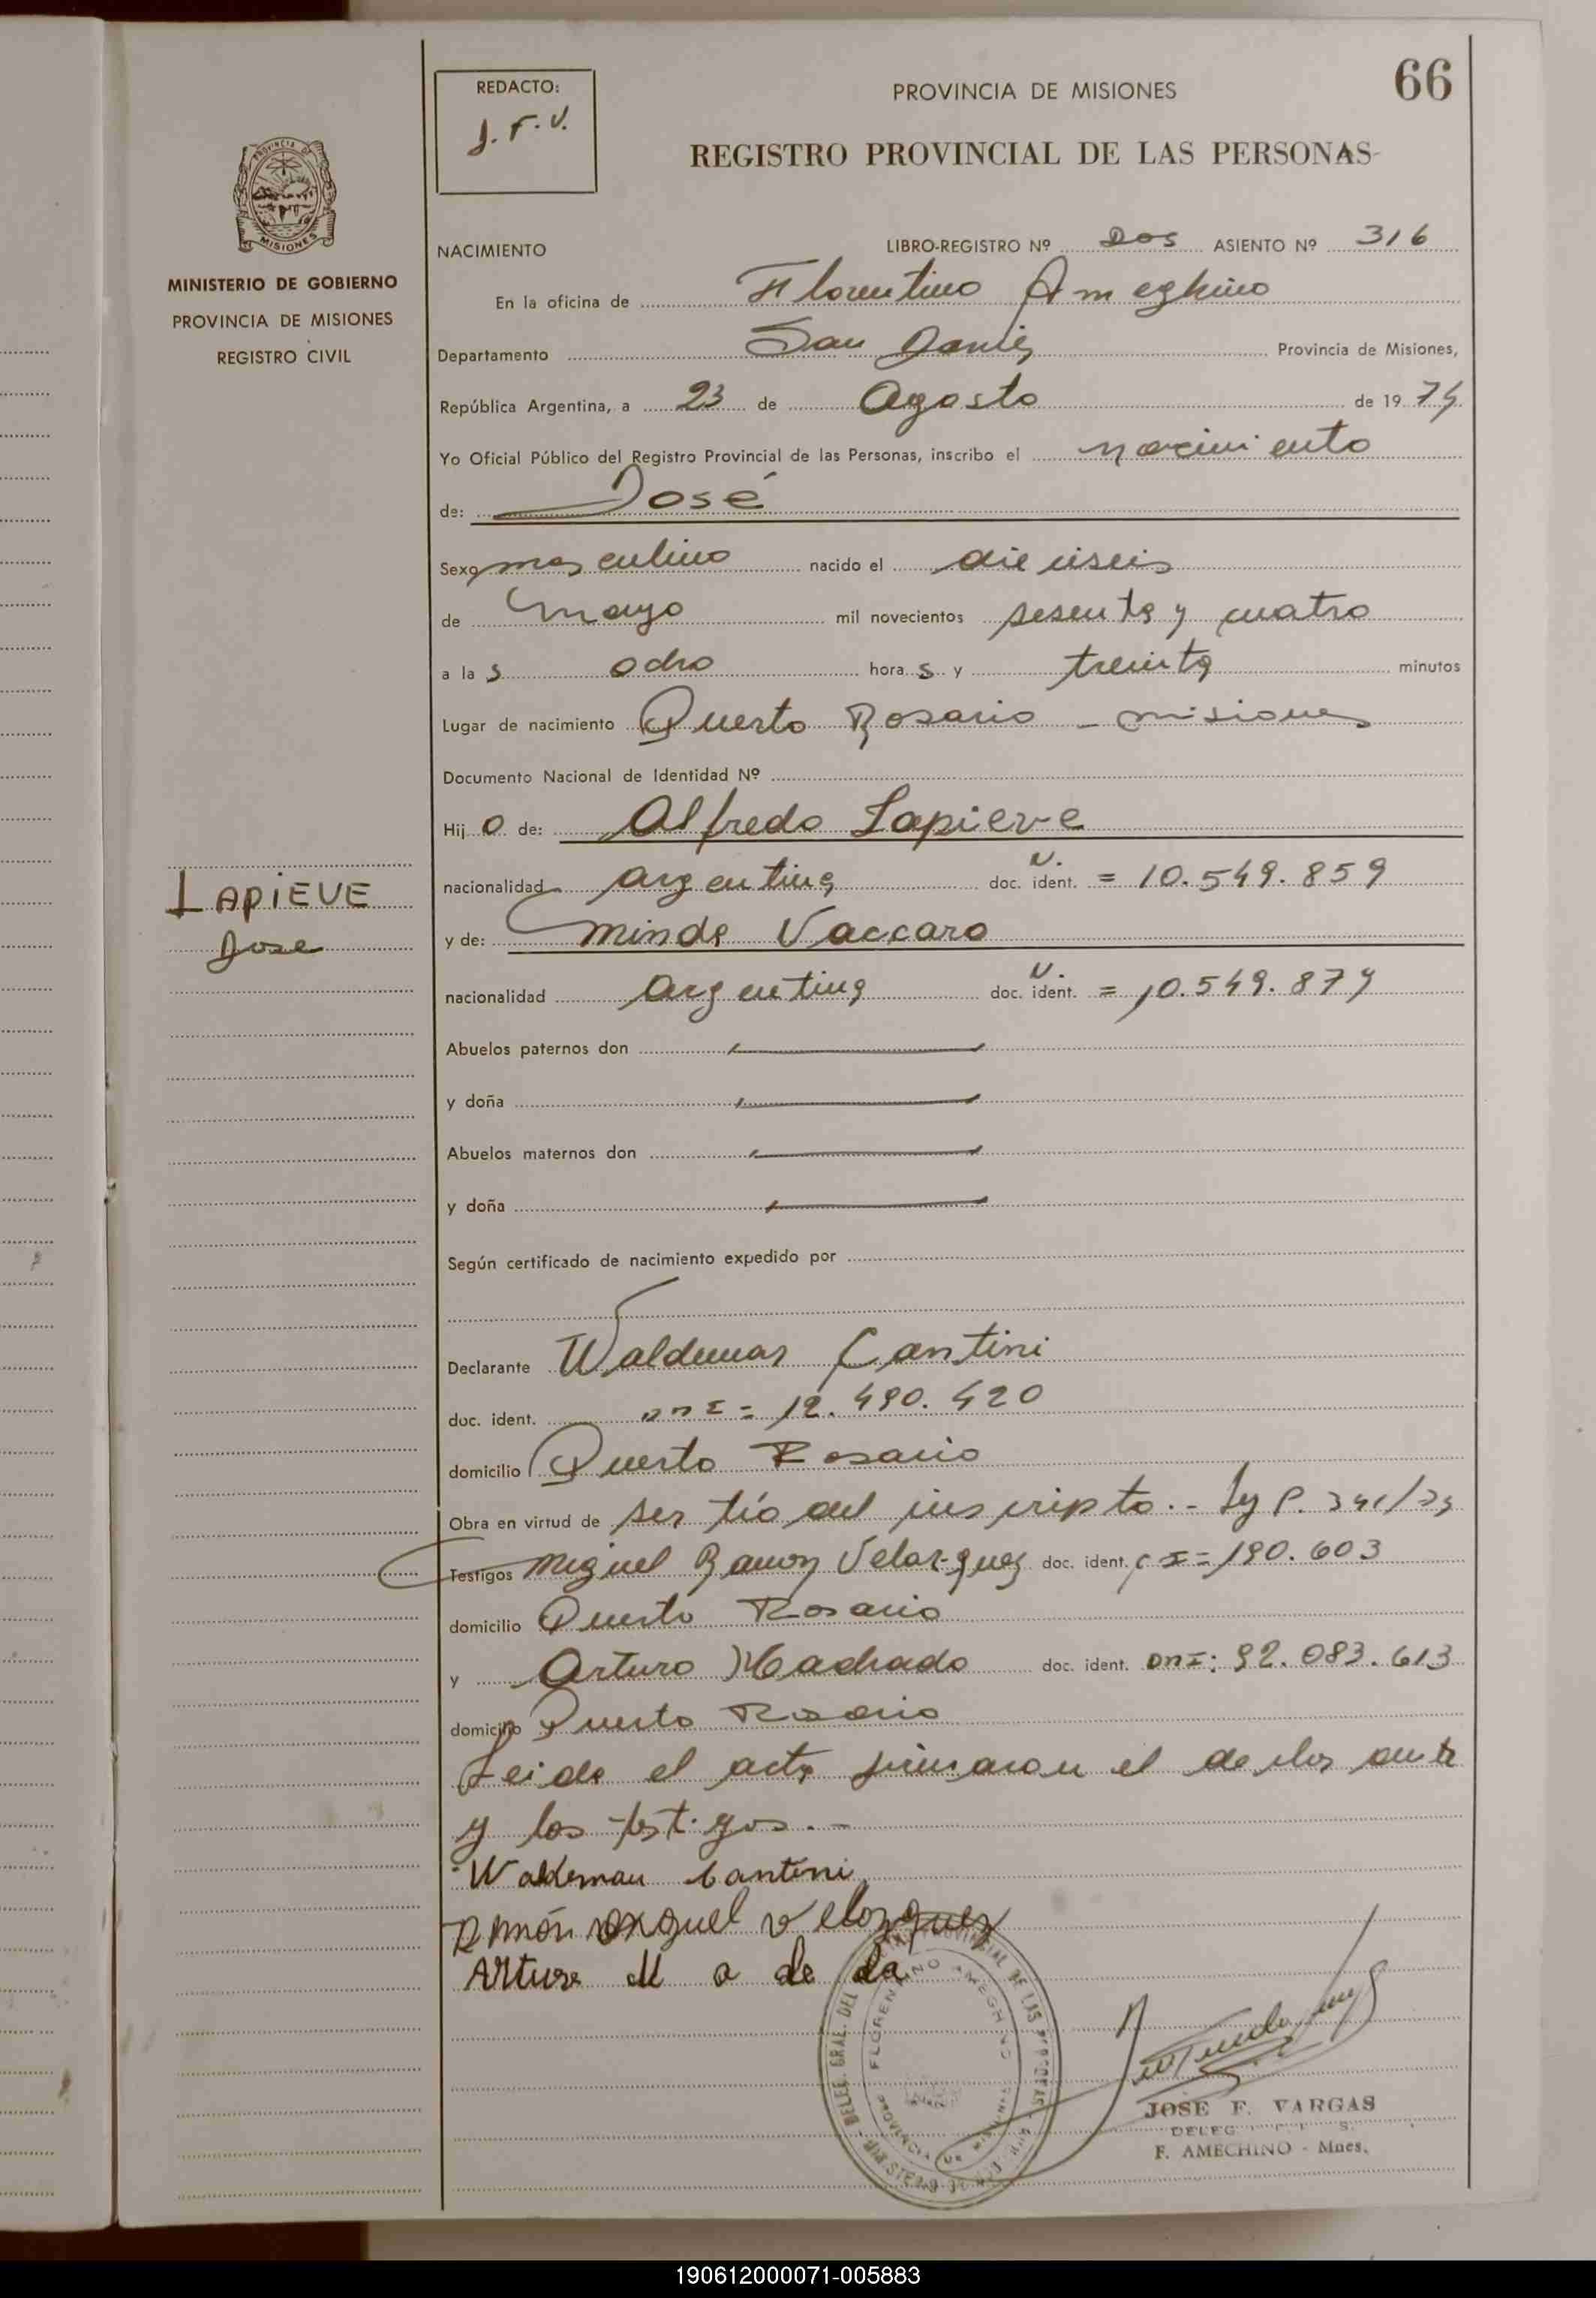 REDACTO:
J. F. V.
PROVINCIA DE MISIONES
66
REGISTRO PROVINCIAL DE LAS PERSONAS
PROVINCIA DE
MISIONES
MINISTERIO DE GOBIERNO
PROVINCIA DE MISIONES
REGISTRO CIVIL
LAPIEVE
Jose
NACIMIENTO LIBRO-REGISTRO Nº Dos ASIENTO Nº 316
En la oficina de Florentino Ameghino
Departamento San Javier Provincia de Misiones,
República Argentina, a 23 de Agosto de 1974
Yo Oficial Público del Registro Provincial de las Personas, inscribo el nacimiento
de: José
Sexo masculino nacido el dieciseis
de Mayo mil novecientos sesenta y cuatro
a la s ocho hora s y treinta minutos
Lugar de nacimiento Puerto Rosario - Misiones
Documento Nacional de Identidad Nº
Hij o de: Alfredo Lapieve
nacionalidad argentina doc. ident. = 10.549.859
y de: Minda Vaccaro
nacionalidad argentina doc. ident. = 10.549.874
Abuelos paternos don
y doña
Abuelos maternos don
y doña
Según certificado de nacimiento expedido por
Declarante Waldemar Cantini
doc. ident. DNI = 12.490.420
domicilio Puerto Rosario
Obra en virtud de ser tío del inscripto.-
Testigos Miguel Ramon Velazquez doc. ident. C I = 190.603
domicilio Puerto Rosario
y Arturo Machado doc. ident. DNI: 92.083.613
domicilio Puerto Rosario
Leida el acta firmaron el declarante
y los testigos.-
Waldemar Cantini
Ramón Miguel Velazquez
Arturo M a do
FLORENTINO AMEGHINO
JOSE F. VARGAS
F. AMECHINO - Mnes.
190612000071-005883